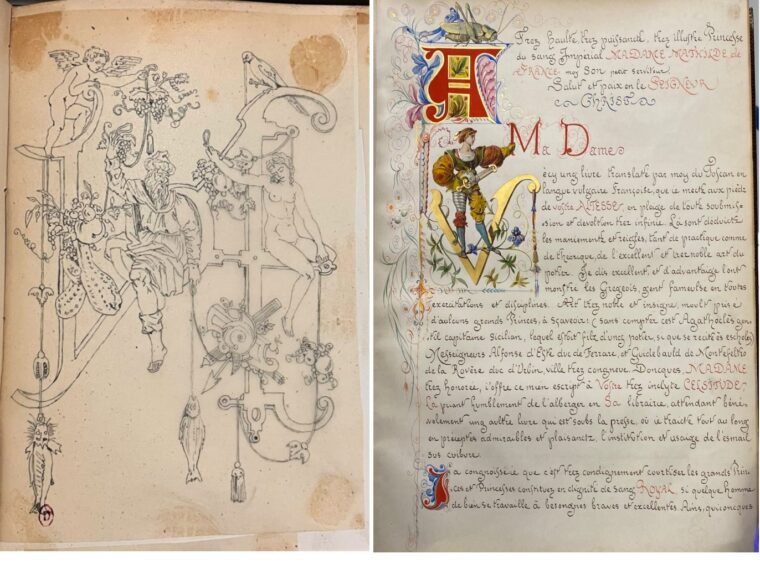 A
Trez haulte, trez puissante, trez illustre Princesse
du sang Imperial MADAME MATHILDE de
FRANCE moy Son petit serviteur
Salut et paix en le SEIGNEUR
CHRIST
Ma Dame
Vecy ung livre translaté par moy du Toscan en
langue vulgaire Françoise, que ie mectz aux piedz
de vostre ALTESSE, en pleige de toute soubmis-
sion et devotion trez infinie. Là sont deduictz
les maniementz et reigles, tant de practique comme
de theorique, de l'excellent et trez noble art du
potier. Je dis excellent et d'advantaige l'ont
monstré les Gregeois, gent fameulse en toutes
excercitations et disciplines. Art trez noble et insigne, moult prisé
d'aulcuns grands Princes, à sçavoir: (sans compter cest Agathoclès gen-
til capitaine Sicilian, lequel estoit filz d'ung potier, si que se recite ès escholes)
Messeigneurs Alfonse d'Este duc de Ferrare, et Guidebauld de Montefeltro
de la Rovère duc d'Urbin, ville trez congneue. Doncques, MADAME
trez honorée, i'offre ce mien escript à Vostre trez inclyte CELSITUDE
La priant humblement de l'alberger en Sa librairie, attendant béné-
volement ung aultre livre qui est soubs la presse, où ie traicte tout au long
en preceptes admirables et plaisantz, l'institution et usaige de l'esmail
sus cuibvre.
Ja congnoissoie que c'est trez condignement courtiser les grands Prin-
ces et Princesses constituez en dignité de sang ROYAL, si quelque homme
de bien se travaille à besongnes braves et excellentes. Ains, quiconques